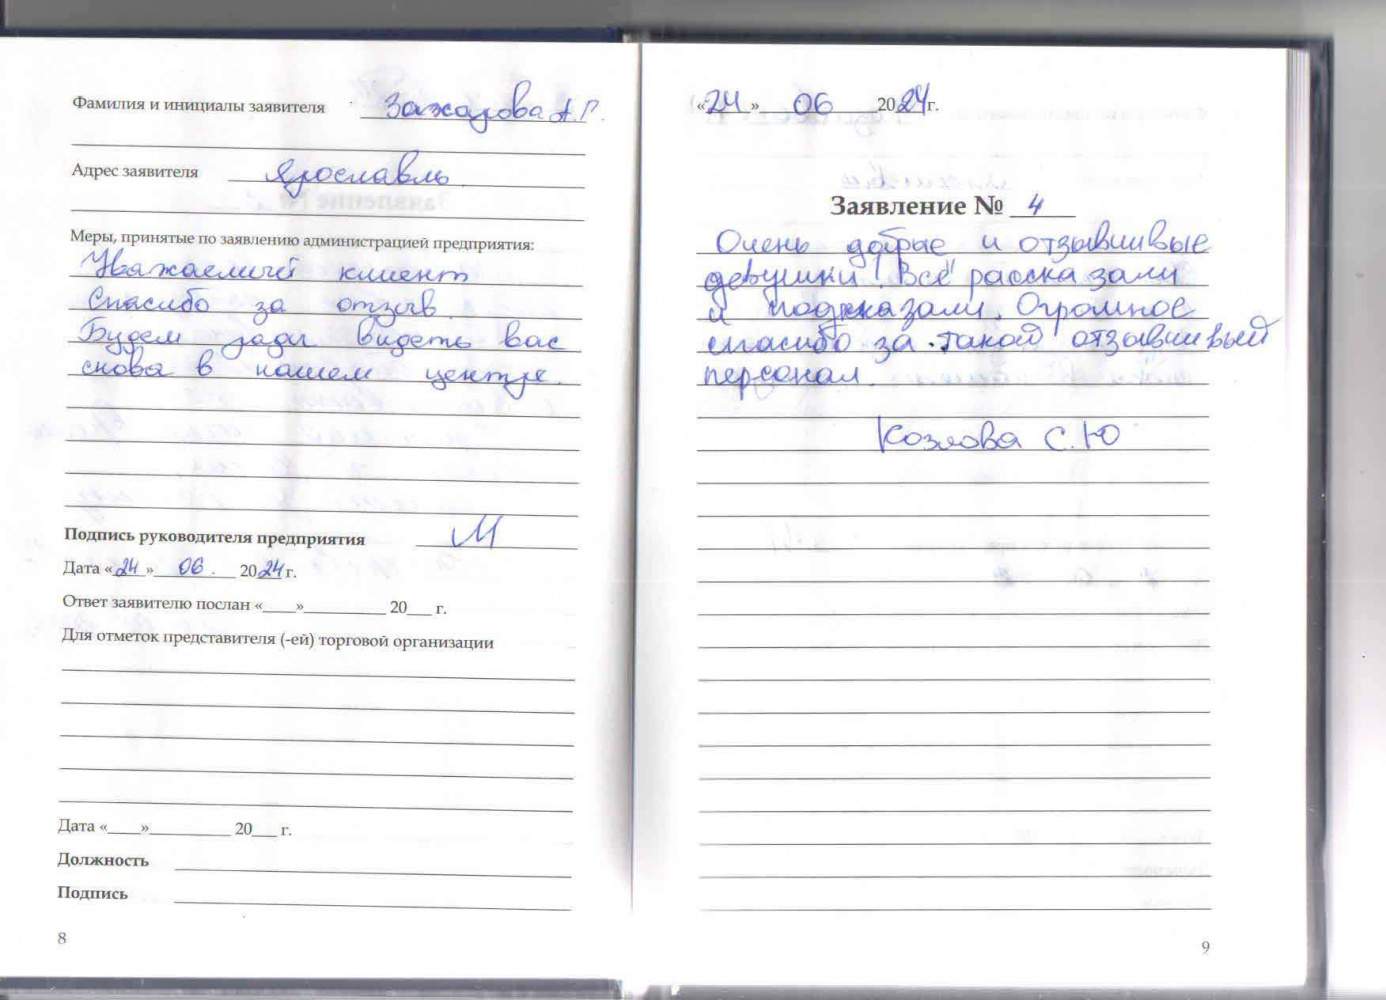 Фамилия и инициалы заявителя Захарова А.Г.
Адрес заявителя Ярославль
Меры, принятые по заявлению администрацией предприятия:
Уважаемый клиент
Спасибо за отзыв.
Будем рады видеть вас
снова в нашем центре.
Подпись руководителя предприятия
Дата «24» 06. 2024 г.
Ответ заявителю послан «____»__________ 20___ г.
Для отметок представителя (-ей) торговой организации
Дата «____»__________ 20___ г.
Должность
Подпись
8
«24» 06 2024 г.
Заявление № 4
Очень добрые и отзывчивые
девушки! Всё рассказали
и подсказали. Огромное
спасибо за такой отзывчивый
персонал.
Козлова С.Ю
9